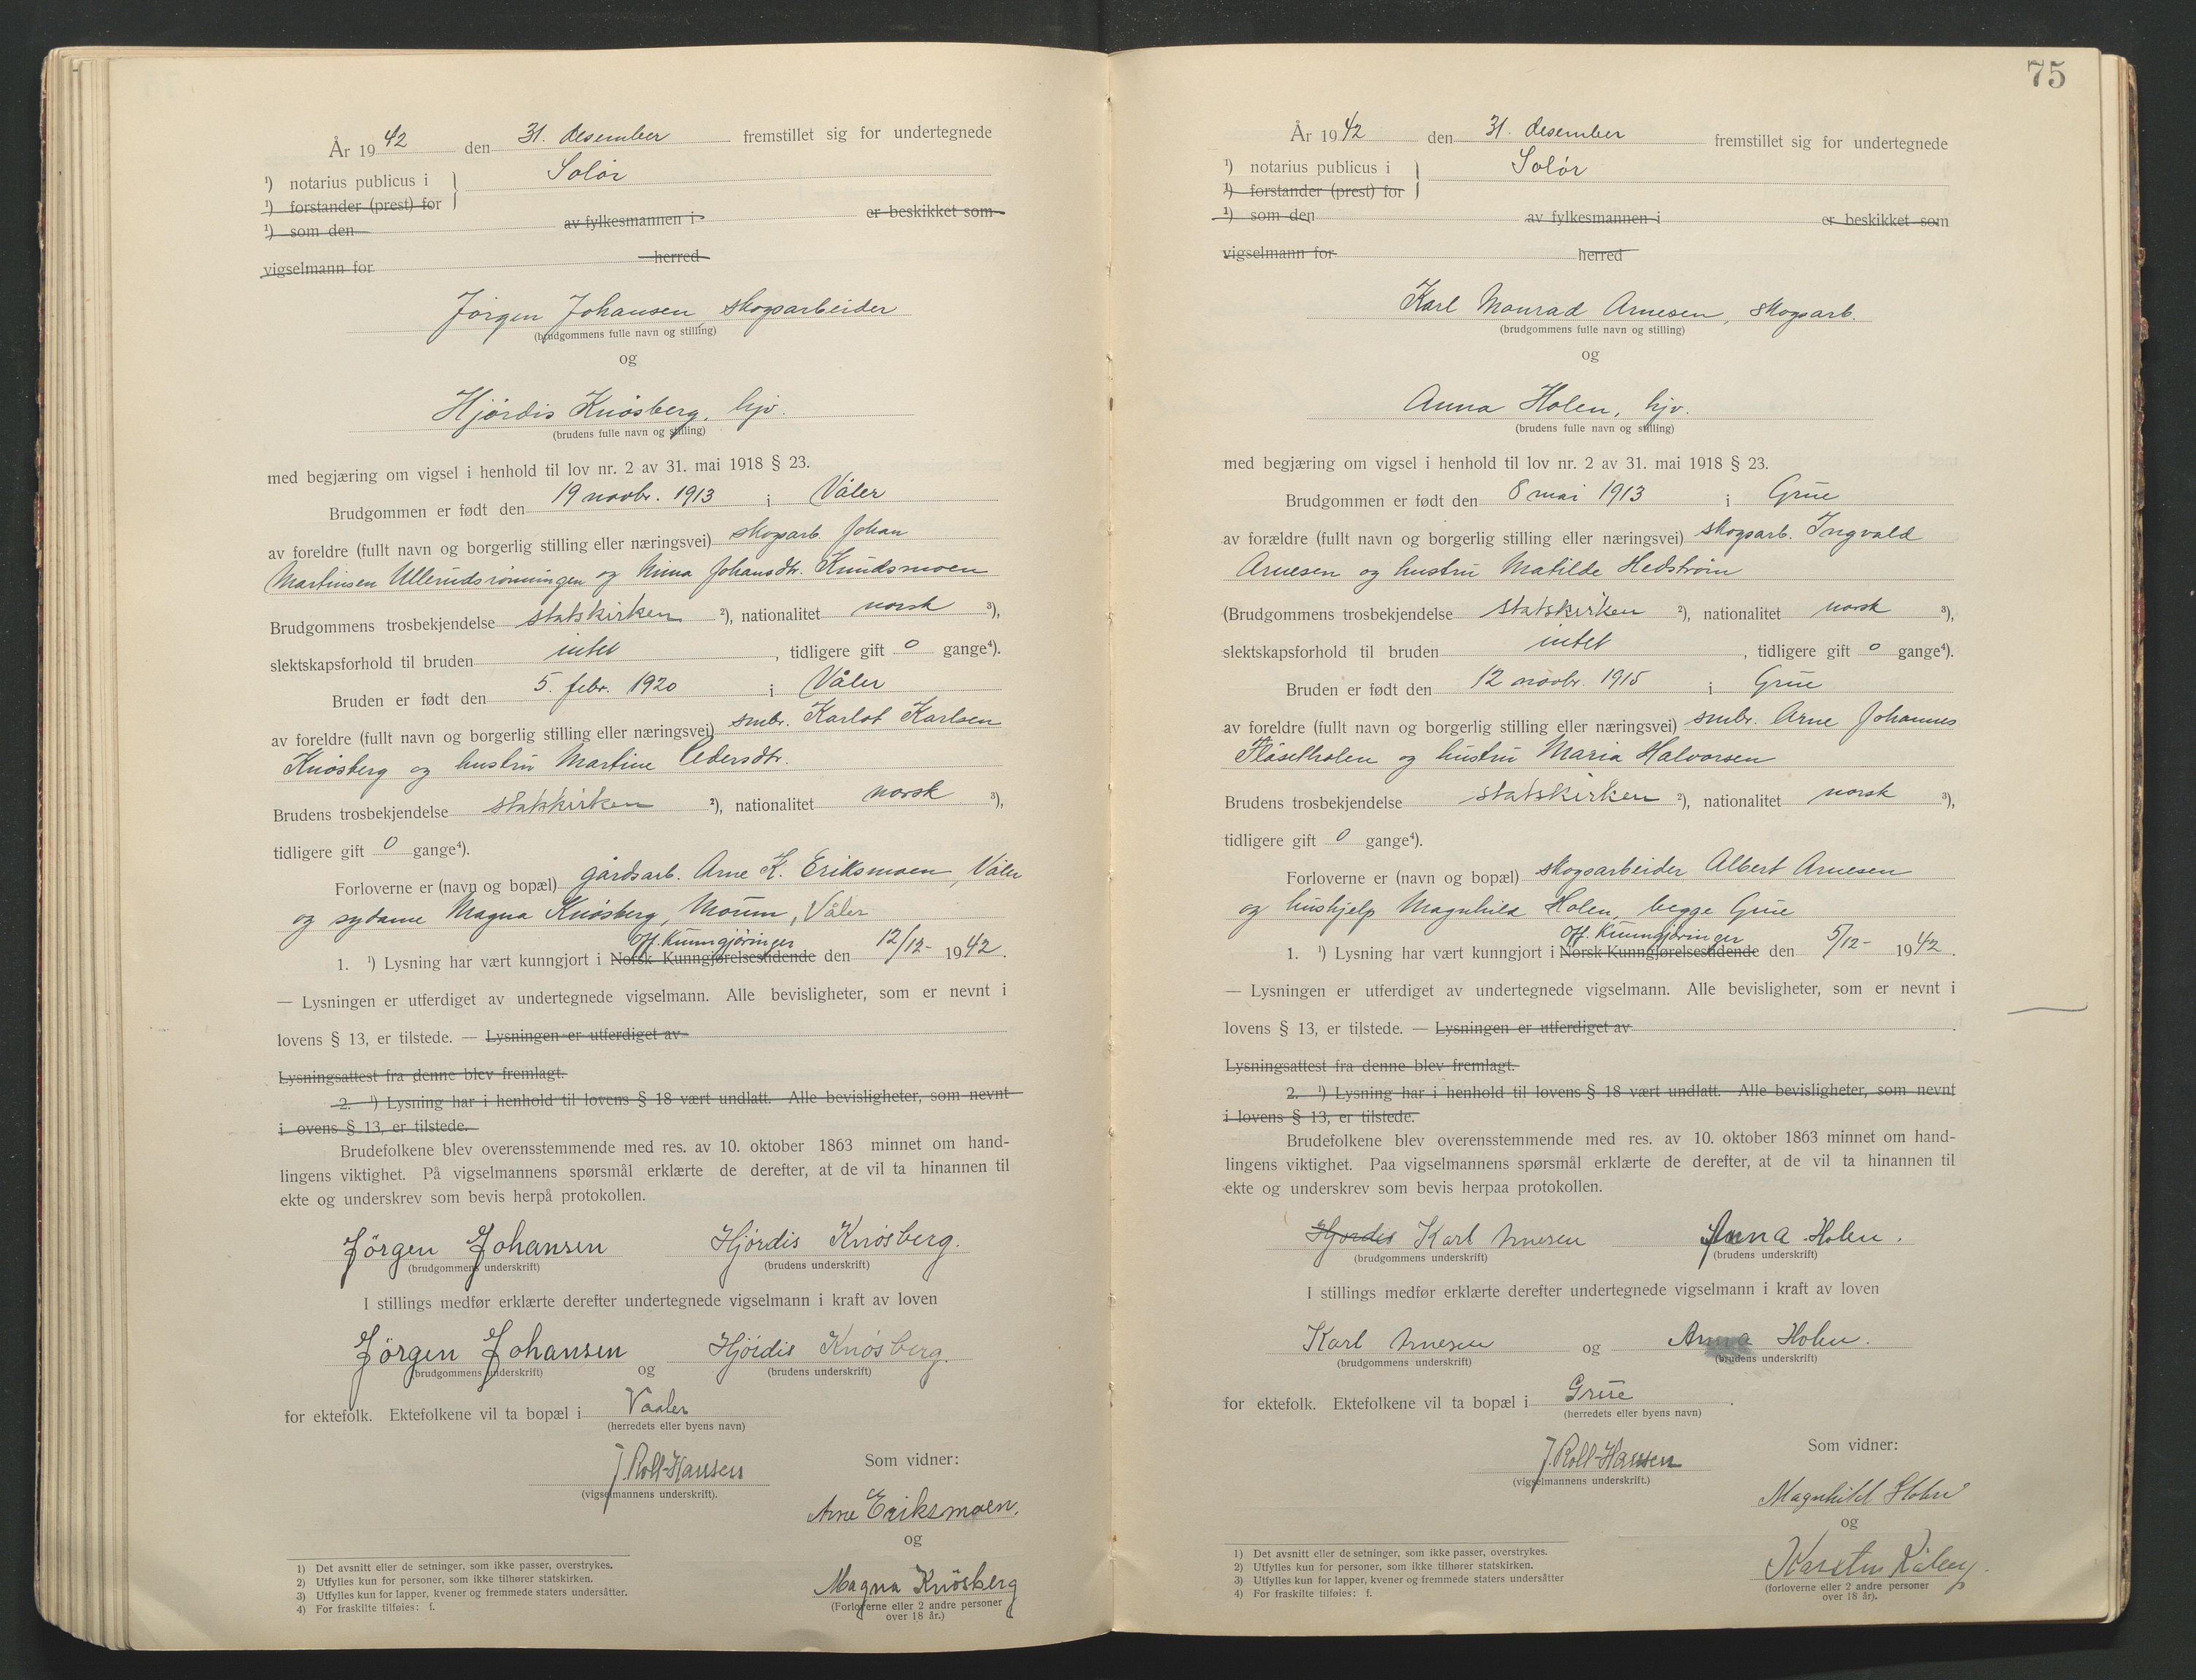 År 1942 den 31. desember fremstillet sig for undertegnede
¹) notarius publicus i } Solør
¹) forstander (prest) for
¹) som den av fylkesmannen i er beskikket som
vigselmann for herred
Jörgen Johansen, skogsarbeider
(brudgommens fulle navn og stilling)
og
Hjördis Knösberg, hjv.
(brudens fulle navn og stilling)
med begjæring om vigsel i henhold til lov nr. 2 av 31. mai 1918 § 23.
Brudgommen er født den 19 novbr. 1913 i Våler
av foreldre (fullt navn og borgerlig stilling eller næringsvei) skogsarb. Johan
Martinsen Ullerudsrönningen og Nina Johansdtr. Knudsmoen
Brudgommens trosbekjendelse statskirken ²), nationalitet norsk ³),
slektskapsforhold til bruden intet, tidligere gift 0 gange⁴).
Bruden er født den 5. febr. 1920 i Våler
av foreldre (fullt navn og borgerlig stilling eller næringsvei) smbr. Karlot Karlsen
Knösberg og hustru Martine Pedersdtr.
Brudens trosbekjendelse statskirken ²), nationalitet norsk ³),
tidligere gift 0 gange⁴).
Forloverne er (navn og bopæl) gårdsarb. Arne K. Eriksmoen, Våler
og sydame Magna Knösberg, Moum, Våler
Off. Kunngjöringer
1. ¹) Lysning har vært kunngjort i Norsk Kunngjørelsestidende den 12/12- 1942.
— Lysningen er utferdiget av undertegnede vigselmann. Alle bevisligheter, som er nevnt i
lovens § 13, er tilstede. — Lysningen er utferdiget av
Lysningsattest fra denne blev fremlagt.
2. ¹) Lysning har i henhold til lovens § 18 vært undlatt. Alle bevisligheter, som nevnt
i ovens § 13, er tilstede.
Brudefolkene blev overensstemmende med res. av 10. oktober 1863 minnet om hand-
lingens viktighet. På vigselmannens spørsmål erklærte de derefter, at de vil ta hinannen til
ekte og underskrev som bevis herpå protokollen.
Jörgen Johansen Hjördis Knösberg.
(brudgommens underskrift) (brudens underskrift)
I stillings medfør erklærte derefter undertegnede vigselmann i kraft av loven
Jörgen Johansen og Hjördis Knösberg.
(brudgommens underskrift) (brudens underskrift)
for ektefolk. Ektefolkene vil ta bopæl i Vaaler
(herredets eller byens navn)
J. Roll-Hansen
(vigselmannens underskrift).
Som vidner:
Arne Eriksmoen.
og
Magna Knösberg
(Forloverne eller 2 andre personer
over 18 år.)
1) Det avsnitt eller de setninger, som ikke passer, overstrykes.
2) Utfylles kun for personer, som ikke tilhører statskirken.
3) Utfylles kun for lapper, kvener og fremmede staters undersåtter.
4) For fraskilte tilføies: f.
75
År 1942 den 31. desember fremstillet sig for undertegnede
¹) notarius publicus i } Solör
¹) forstander (prest) for
¹) som den av fylkesmannen i er beskikket som
vigselmann for herred
Karl Monrad Arnesen, skogsarb.
(brudgommens fulle navn og stilling)
og
Anna Holen, hjv.
(brudens fulle navn og stilling)
med begjæring om vigsel i henhold til lov nr. 2 av 31. mai 1918 § 23.
Brudgommen er født den 8 mai 1913 i Grue
av forældre (fullt navn og borgerlig stilling eller næringsvei) skogsarb. Ingvald
Arnesen og hustru Matilde Hedström
(Brudgommens trosbekjendelse statskirken ²), nationalitet norsk ³),
slektskapsforhold til bruden intet, tidligere gift 0 gange⁴).
Bruden er født den 12 novbr. 1915 i Grue
av foreldre (fullt navn og borgerlig stilling eller næringsvei) smbr. Arne Johannes
Flåsetholen og hustru Maria Halvorsen
Brudens trosbekjendelse statskirken ²), nationalitet norsk ³),
tidligere gift 0 gange⁴).
Forloverne er (navn og bopæl) skogsarbeider Albert Arnesen
og hushjelp Magnhild Holen, begge Grue
Off. Kunngjöringer
1. ¹) Lysning har vært kunngjort i Norsk Kunngjørelsestidende den 5/12- 1942.
— Lysningen er utferdiget av undertegnede vigselmann. Alle bevisligheter, som er nevnt i
lovens § 13, er tilstede. — Lysningen er utferdiget av .
Lysningsattest fra denne blev fremlagt.
2. ¹) Lysning har i henhold til lovens § 18 vært undlatt. Alle bevisligheter, som nevnt
i lovens § 13, er tilstede.
Brudefolkene blev overensstemmende med res. av 10. oktober 1863 minnet om hand-
lingens viktighet. Paa vigselmannens spørsmål erklærte de derefter, at de vil ta hinannen til
ekte og underskrev som bevis herpaa protokollen.
Hjordis Karl Arnesen Anna Holen.
(brudgommens underskrift) (brudens underskrift)
I stillings medfør erklærte derefter undertegnede vigselmann i kraft av loven
Karl Arnesen og Anna Holen.
(brudgommens underskrift) (brudens underskrift)
for ektefolk. Ektefolkene vil ta bopæl i Grue.
(herredets eller byens navn)
J. Roll-Hansen
(vigselmannens underskrift.)
Som vidner:
Magnhild Holen
og
(forloverne eller 2 andre personer
over 18 år).
1) Det avsnitt eller de setninger, som ikke passer, overstrykes.
2) Utfylles kun for personer, som ikke tilhører statskirken.
3) Utfylles kun for lapper, kvener og fremmede staters undersåtter
4) For fraskilte tilføies: f.